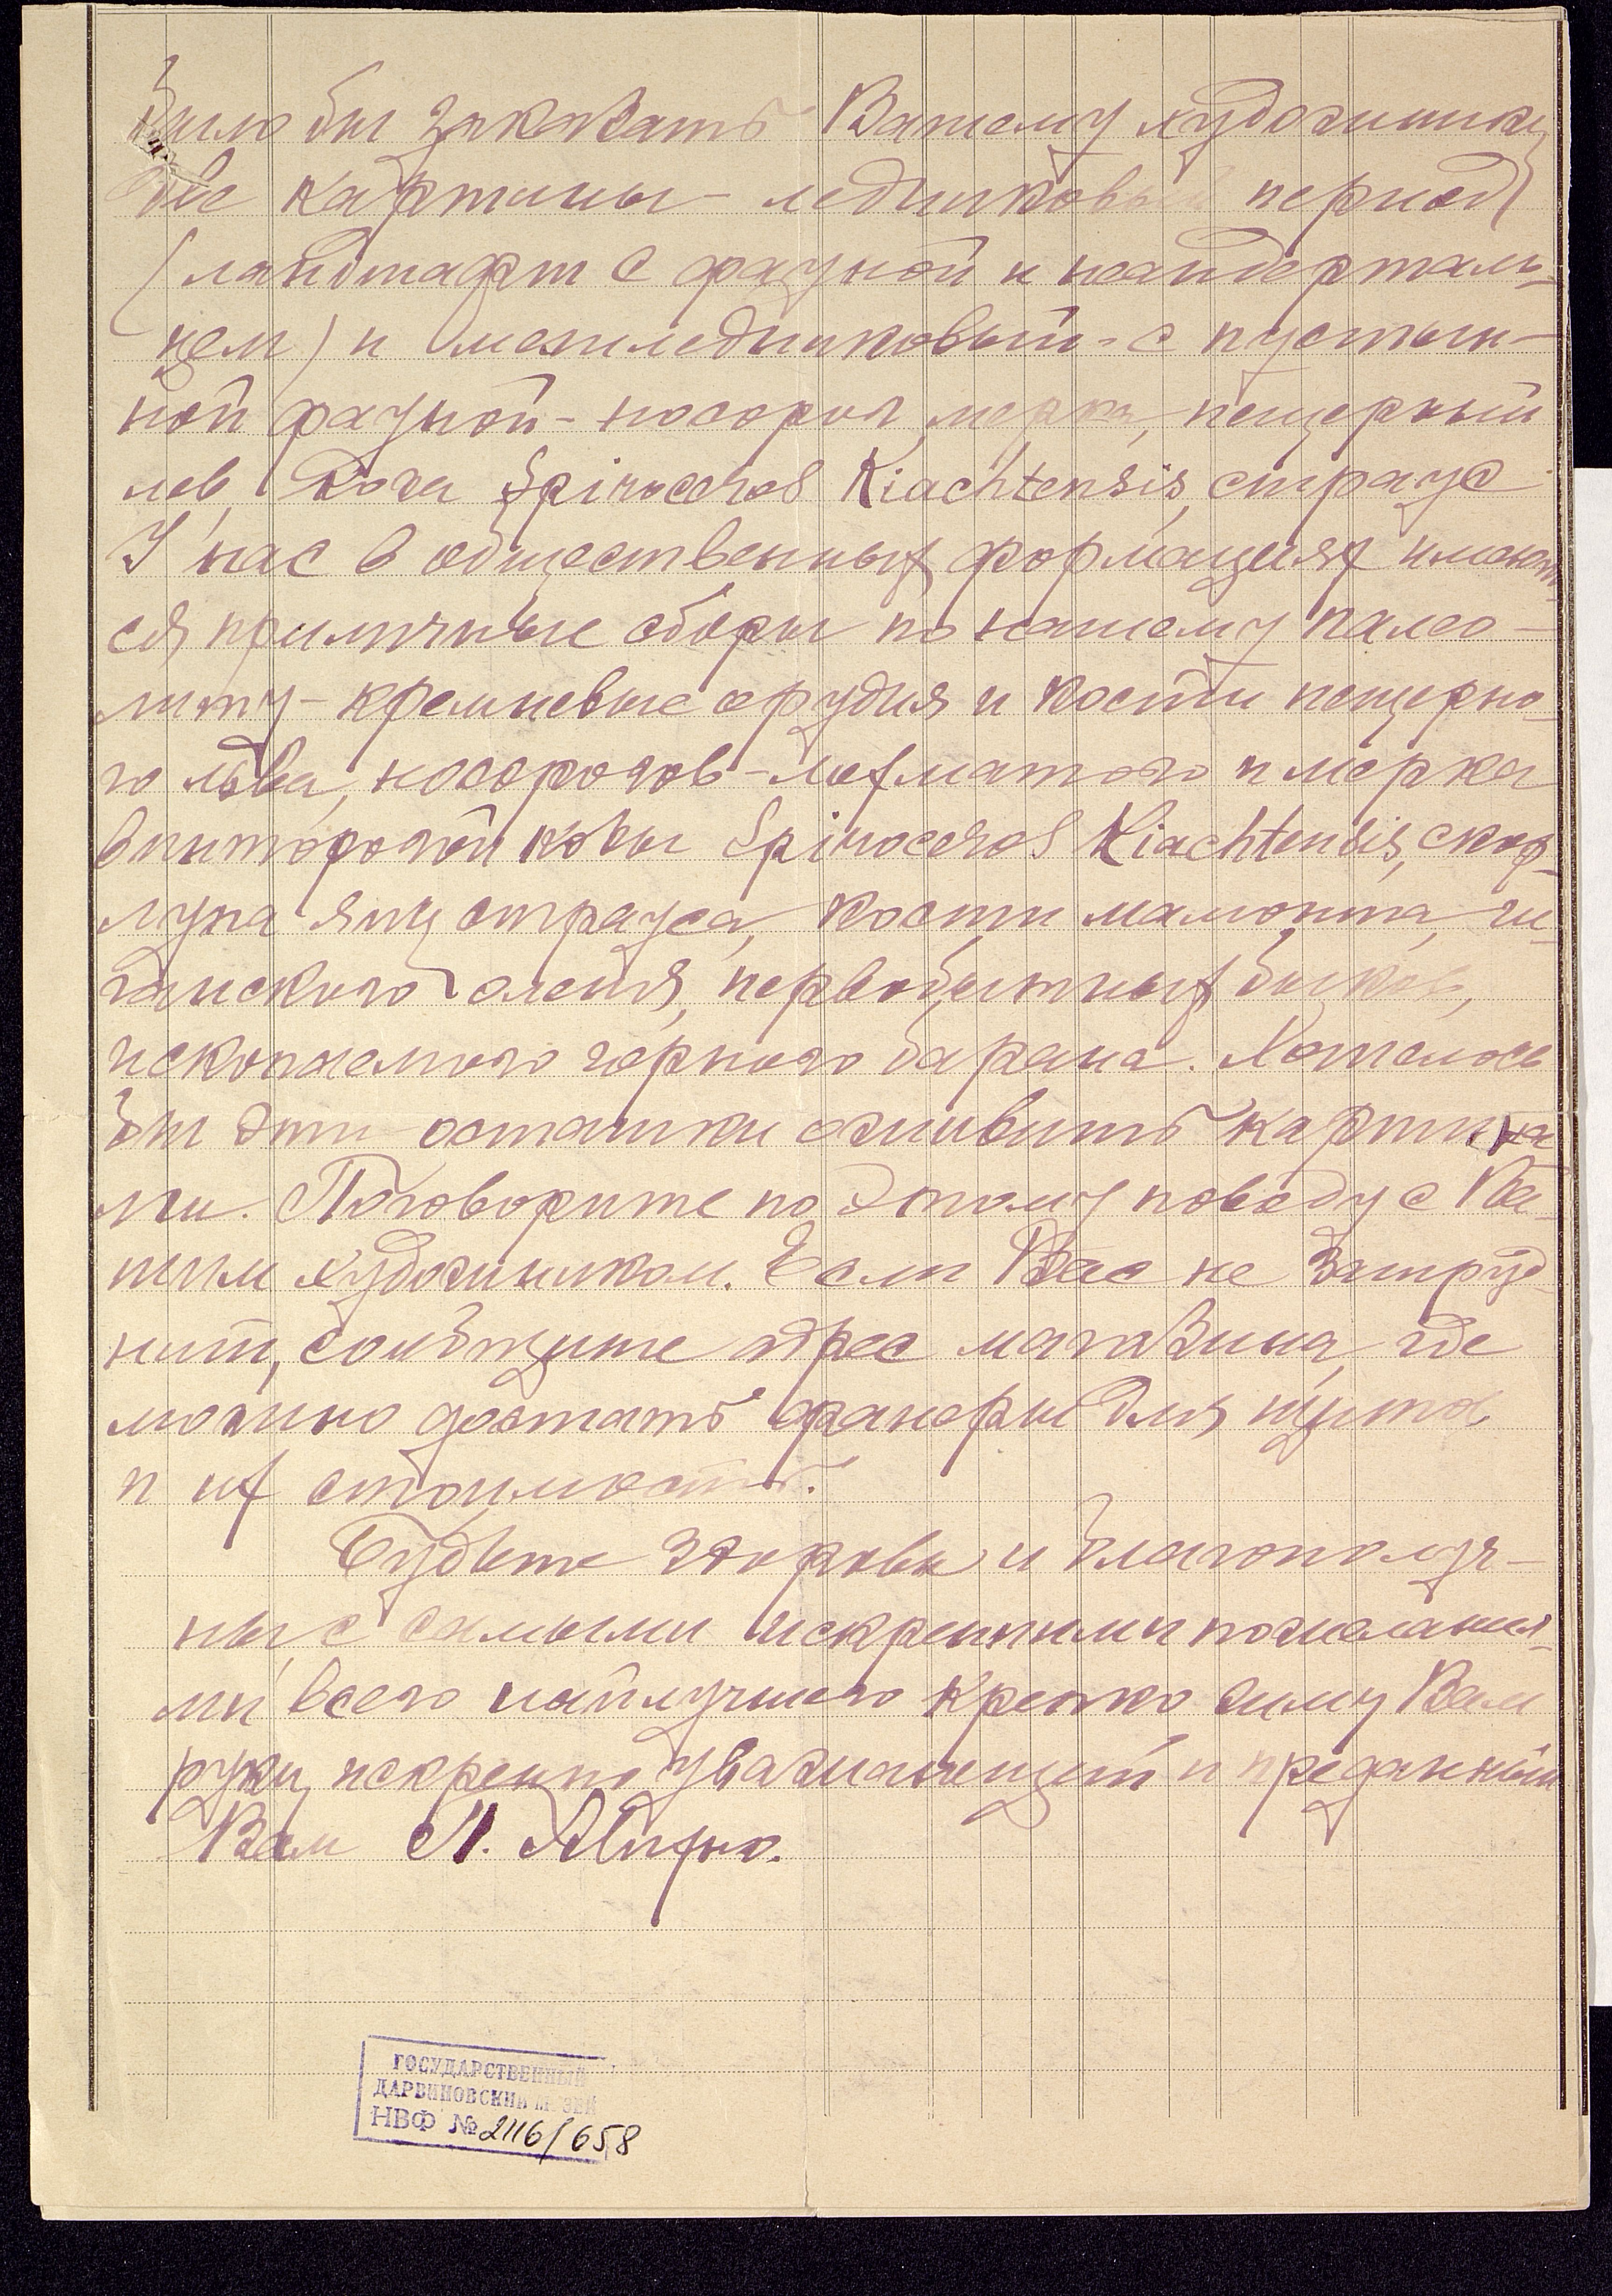 было бы заказать Вашему художнику
две картины - ледниковый период
(ландшафт с фауной и неандерталь-
цем) и межледниковый - с пустын-
ной фауной - носорог мерка, пещерный
лев, коза Spiroceros Kiachtensis, страус
У нас в общественных формациях имеют-
ся приличные сборы по нашему палео-
литу - кремневые орудия и кости пещерно-
го льва, носорогов - лохматого и мерка
винторогой козы Spiroceros Kiachtensis, скор-
лупа яиц страуса, кости мамонта, ги-
гантского оленя, первобытных быков,
ископаемого горного барана. Хотелось
бы эти остатки оживить картина-
ми. Поговорите по этому поводу с Ва-
шим художником. Если Вас не затруд-
нит, сообщите адрес магазина, где
можно достать фанеры для щитов
и их стоимость.
Будьте здоровы и благополуч-
ны, с самыми искренними пожелания-
ми всего найлучшего крепко жму Вам
руку, искренно уважающий и преданный
Вам П.
ГОСУДАРСТВЕННЫЙ
ДАРВИНОВСКИЙ МУЗЕЙ
НВФ № 2116/658